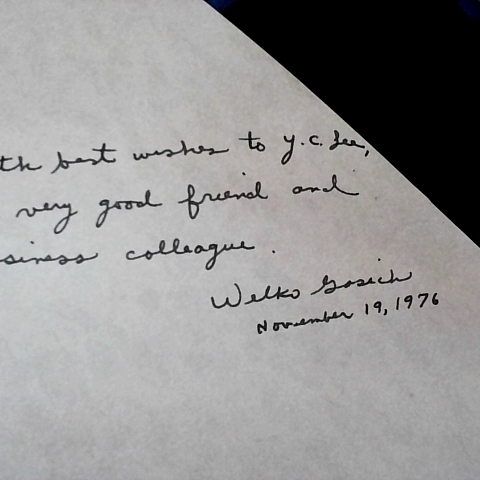 th best wishes to Y.C. Lee,
very good friend and
siness colleague.
Welko Gasich
November 19, 1976